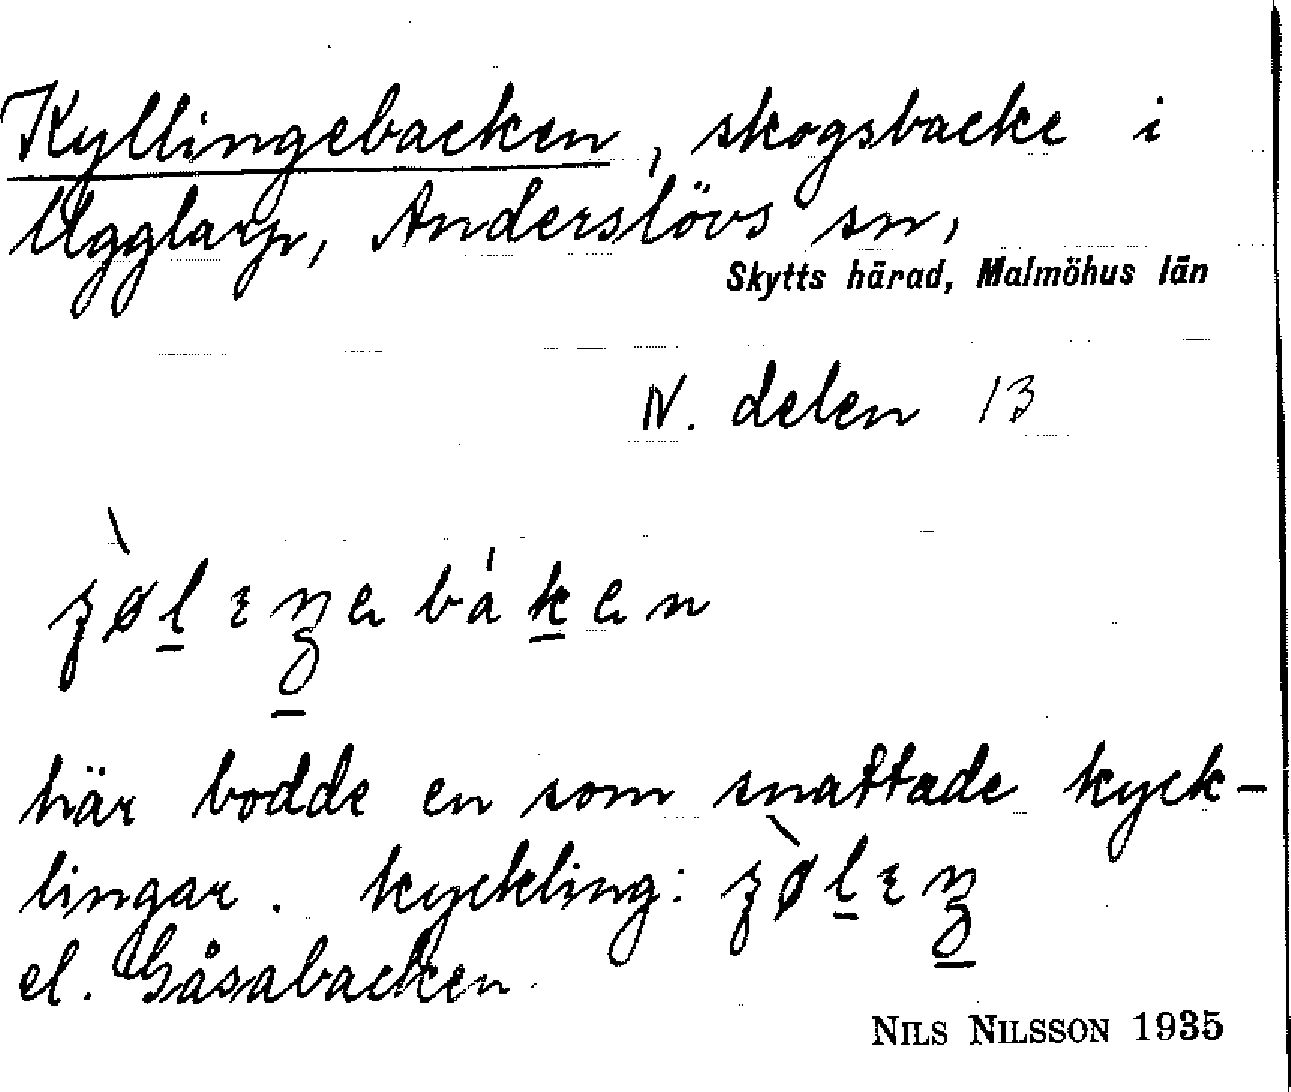 Kyllingebacken, skogsbacke i
Ugglarp, Anderslövs sn,
Skytts härad, Malmöhus län
N. delen 13
här bodde en som snattade kyck-
lingar. kyckling:
el. Gåsabacken.
NILS NILSSON 1935